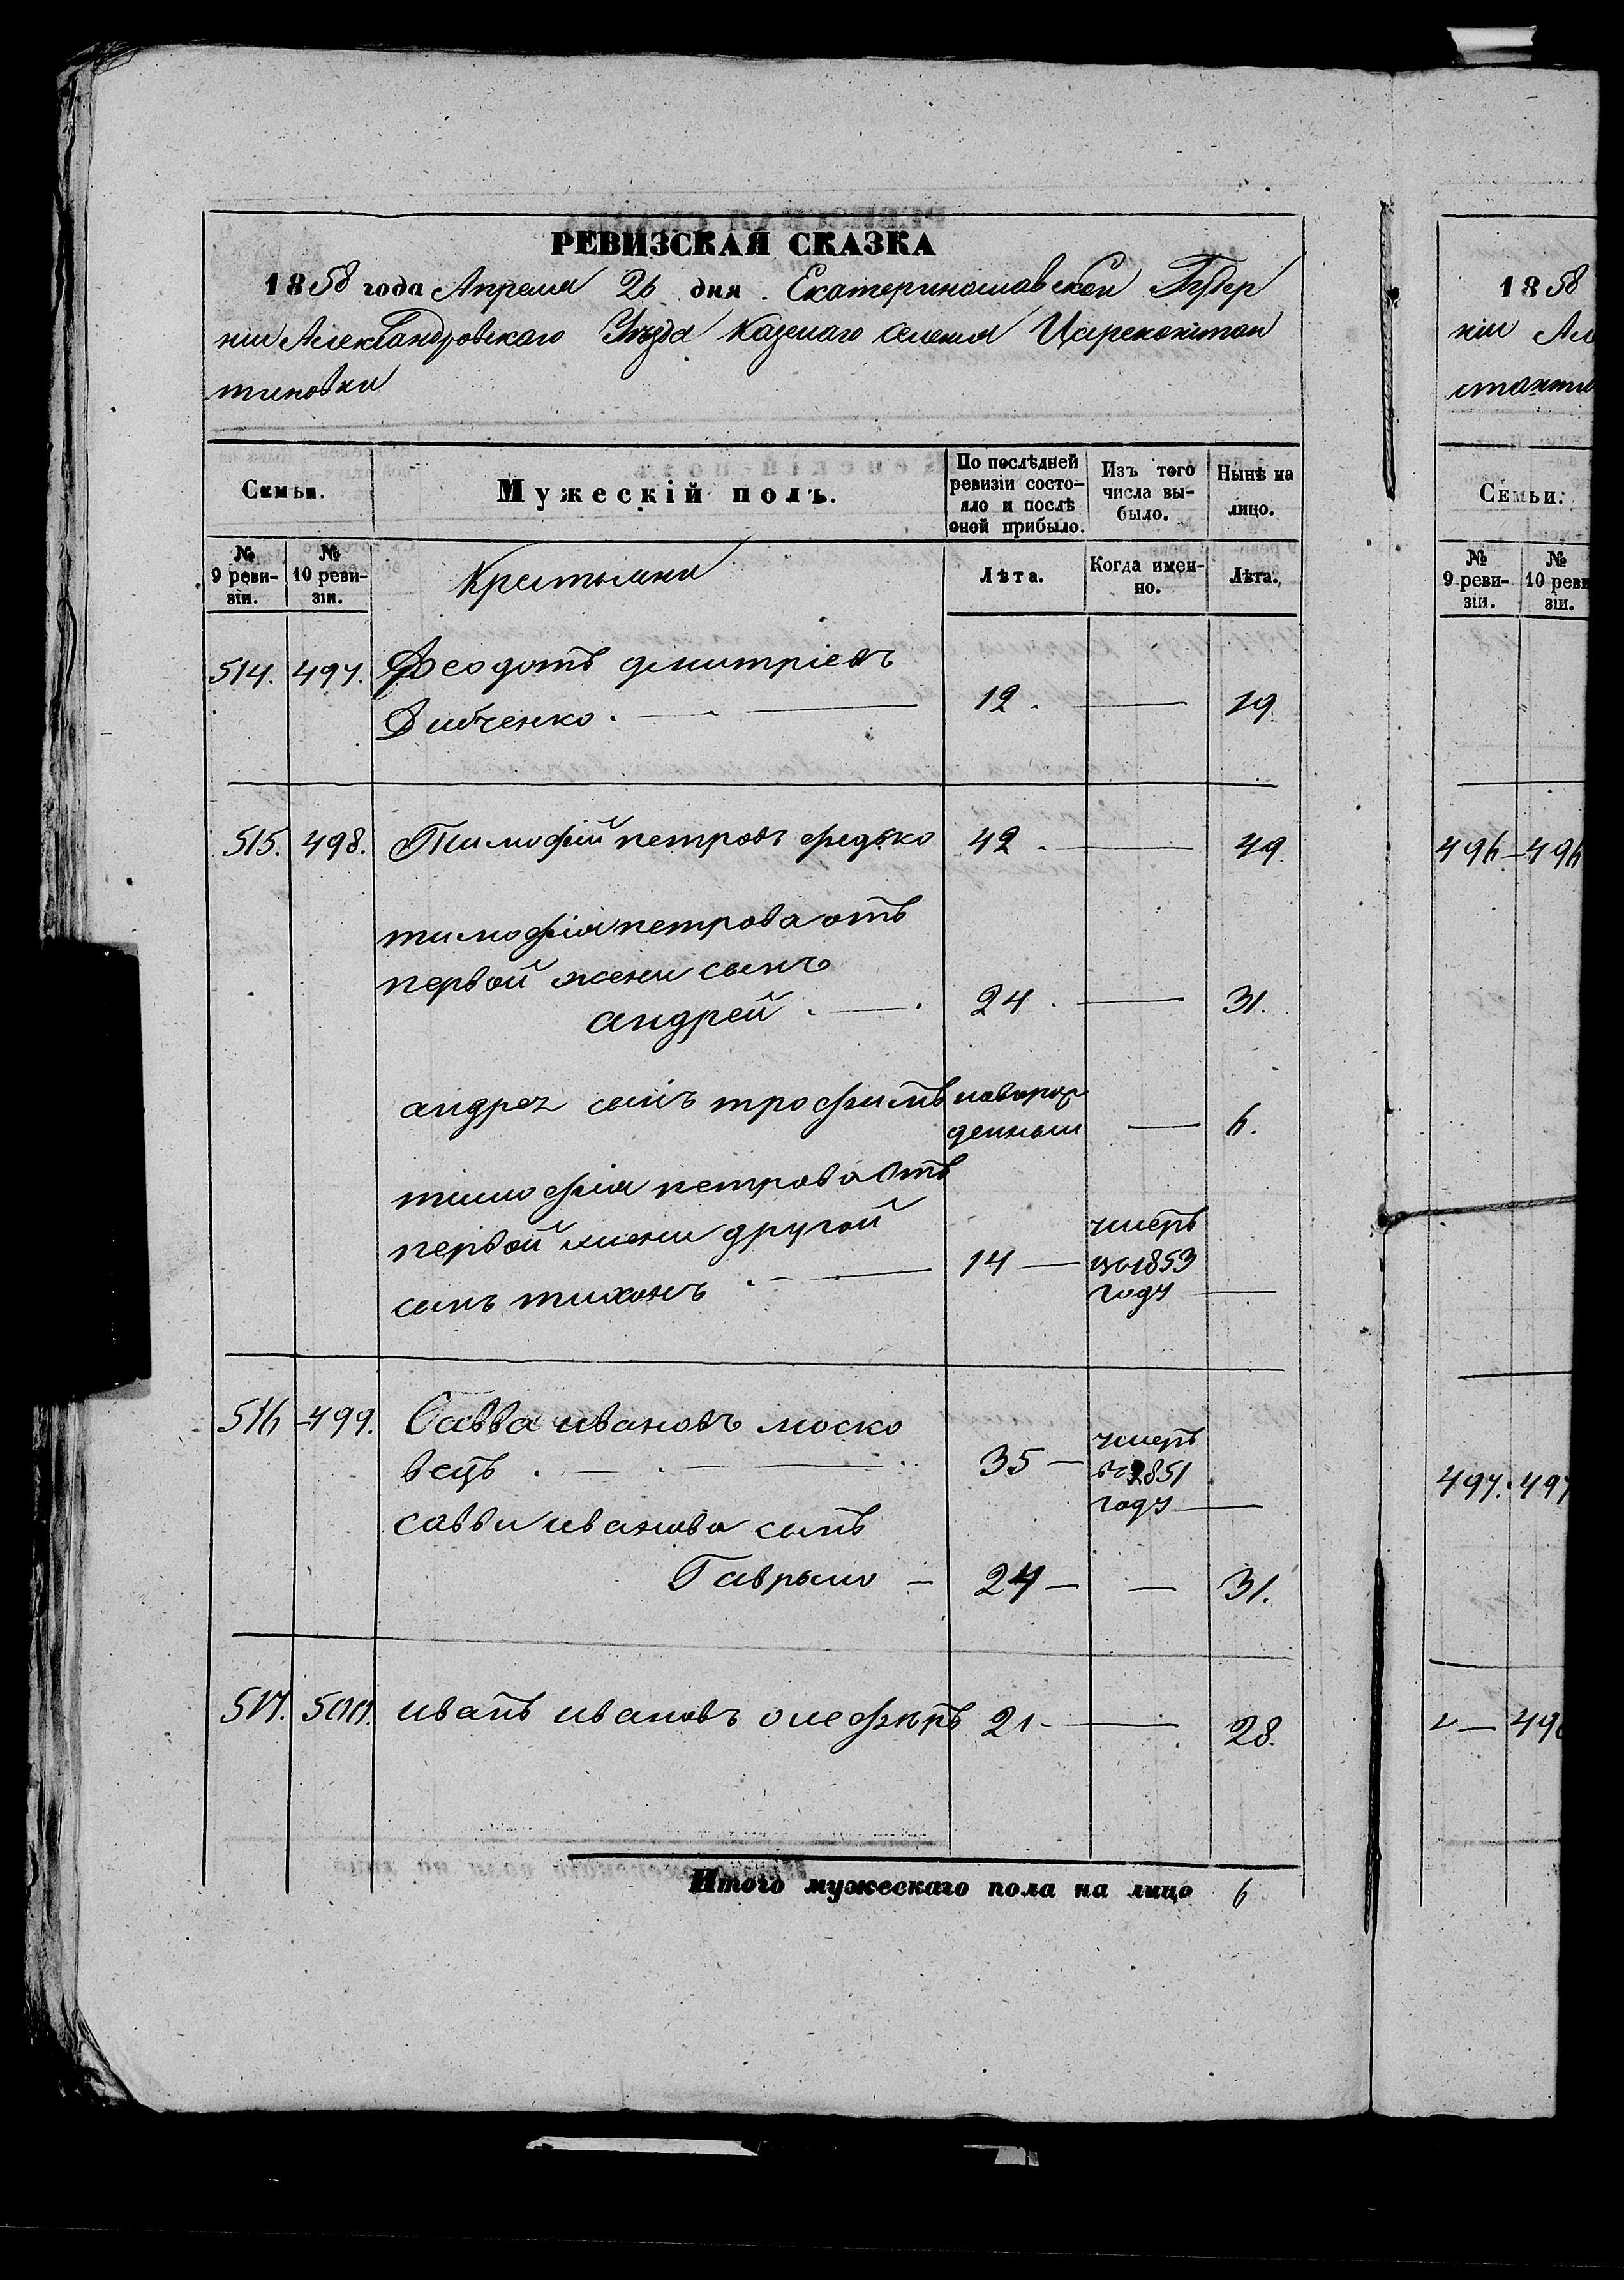 РЕВИЗСКАЯ СКАЗКА
1858 года Апреля 26 дня. Екатеринославской Губер
ніи Александровскаго Уезда Казенаго селения Цареконстан
тиновки
Семьи. Мужескій полъ. По послѣдней ревизіи состо-яло и послѣ оной прибыло. Изъ того числа вы-было. Нынѣ на лицо.
№ 9 реви-зіи. № 10 реви-зіи. Крестьяни Лѣта. Когда имен-но. Лѣта.
514. 497. Феодотъ дмитріевъ
Дибченко. — 12. — 19
515. 498. Тимофій петровъ федько 42. — 49
тимофія петрова отъ
первой жени сынъ
андрей. — 24. — 31.
андрея сынъ трофимъ новорож
денный — 6.
тимофия петрова отъ
первой жени другой
сынъ тихонъ — 14 — умеръ
во 1853
году —
516 — 499. Савва ивановъ моско
вецъ. — 35 — умеръ
во 1851
году —
савви иванова сынъ
Гаврыло — 24 — — 31.
517. 500. иванъ ивановъ 21 — 28.
Итого мужескаго пола на лицо 6
1858
ніи Але
стантин
Семьи.
№ 9 реви-зіи. № 10 реви зіи.
496 — 496
497. 497
— 498